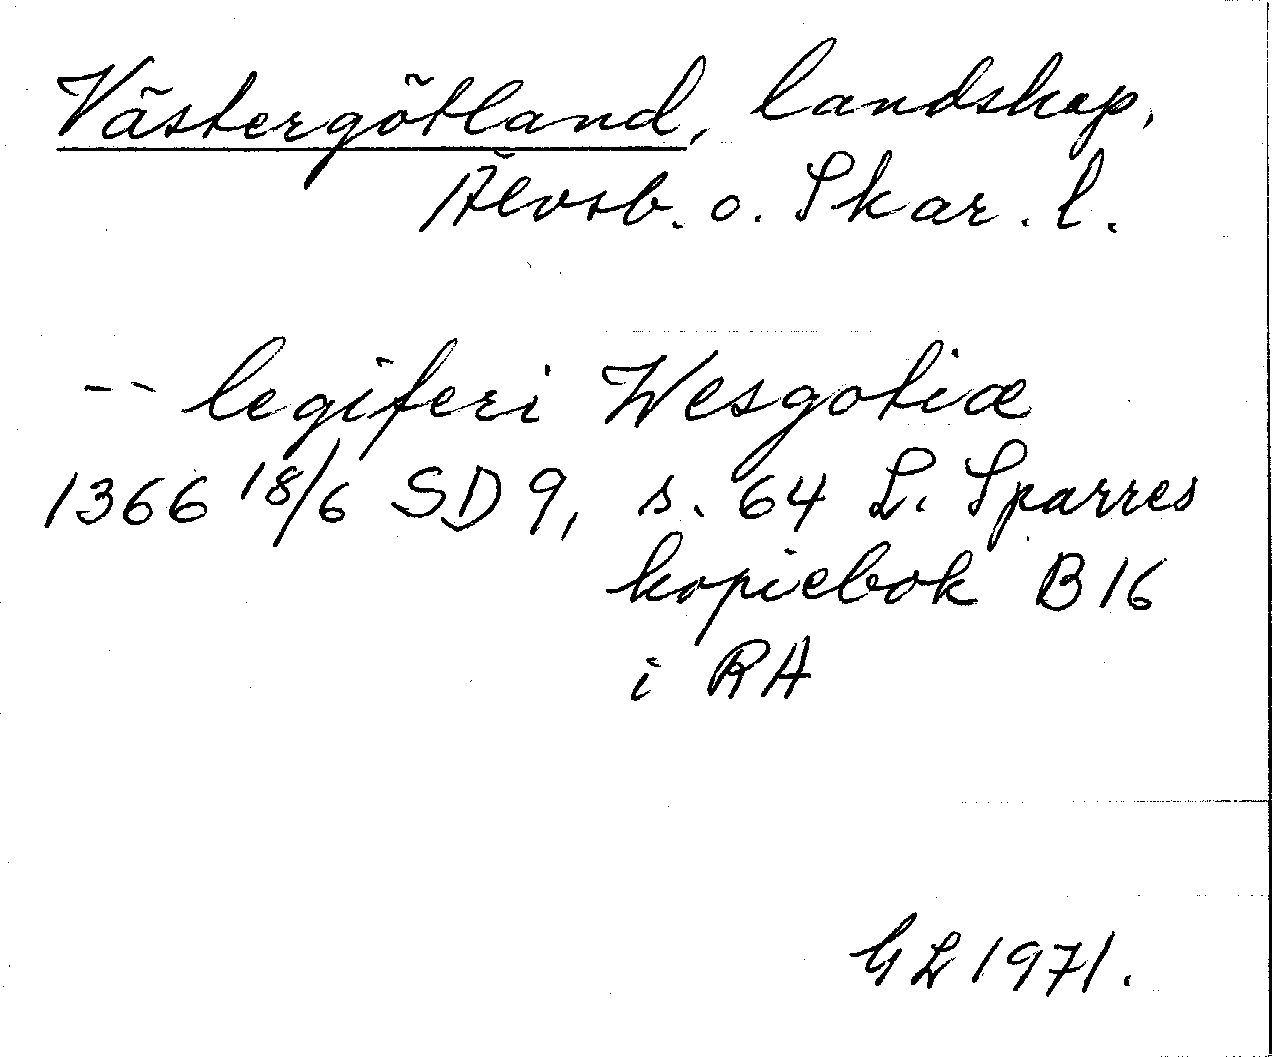 Västergötland, landskap,
Älvsb. o. Skar. l.
-- legiferi Wesgotiæ
1366 18/6 SD 9, s. 64 L. Sparres
kopiebok B 16
i RA
GL 1971.